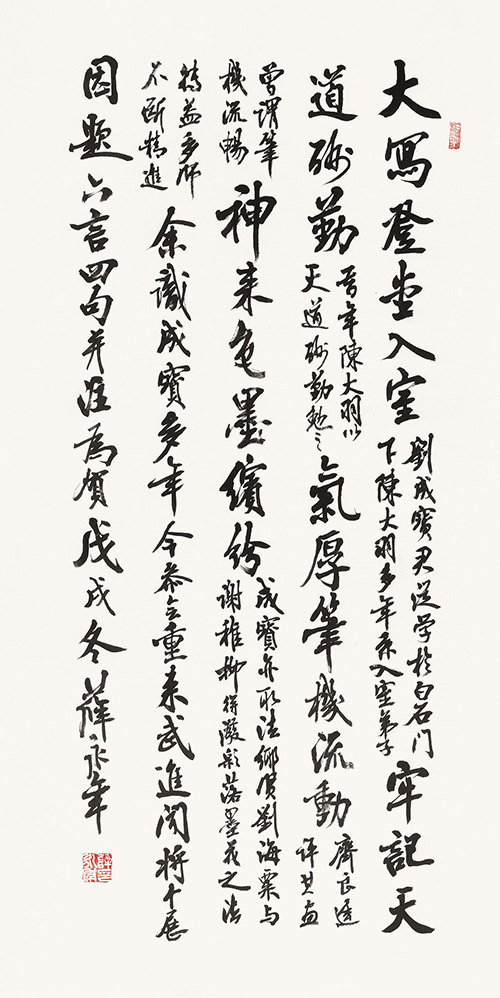 大寫登堂入室
劉成寶君從學於白石门
下陳大羽多年系入室弟子
牢記天
道酬勤
昔年陳大羽以
天道酬勤勉之
氣厚筆機流動
齊良遲
評其畫
曾謂筆
機流暢
神来色墨繽紛
成寶亦取法鄉賢劉海粟与
謝稚柳得潑彩落墨花之法
轉益多师
不断精進
余識成寶多年今参会重来武進闻将个展
因題六言四句并注為賀戊戌冬薛永年